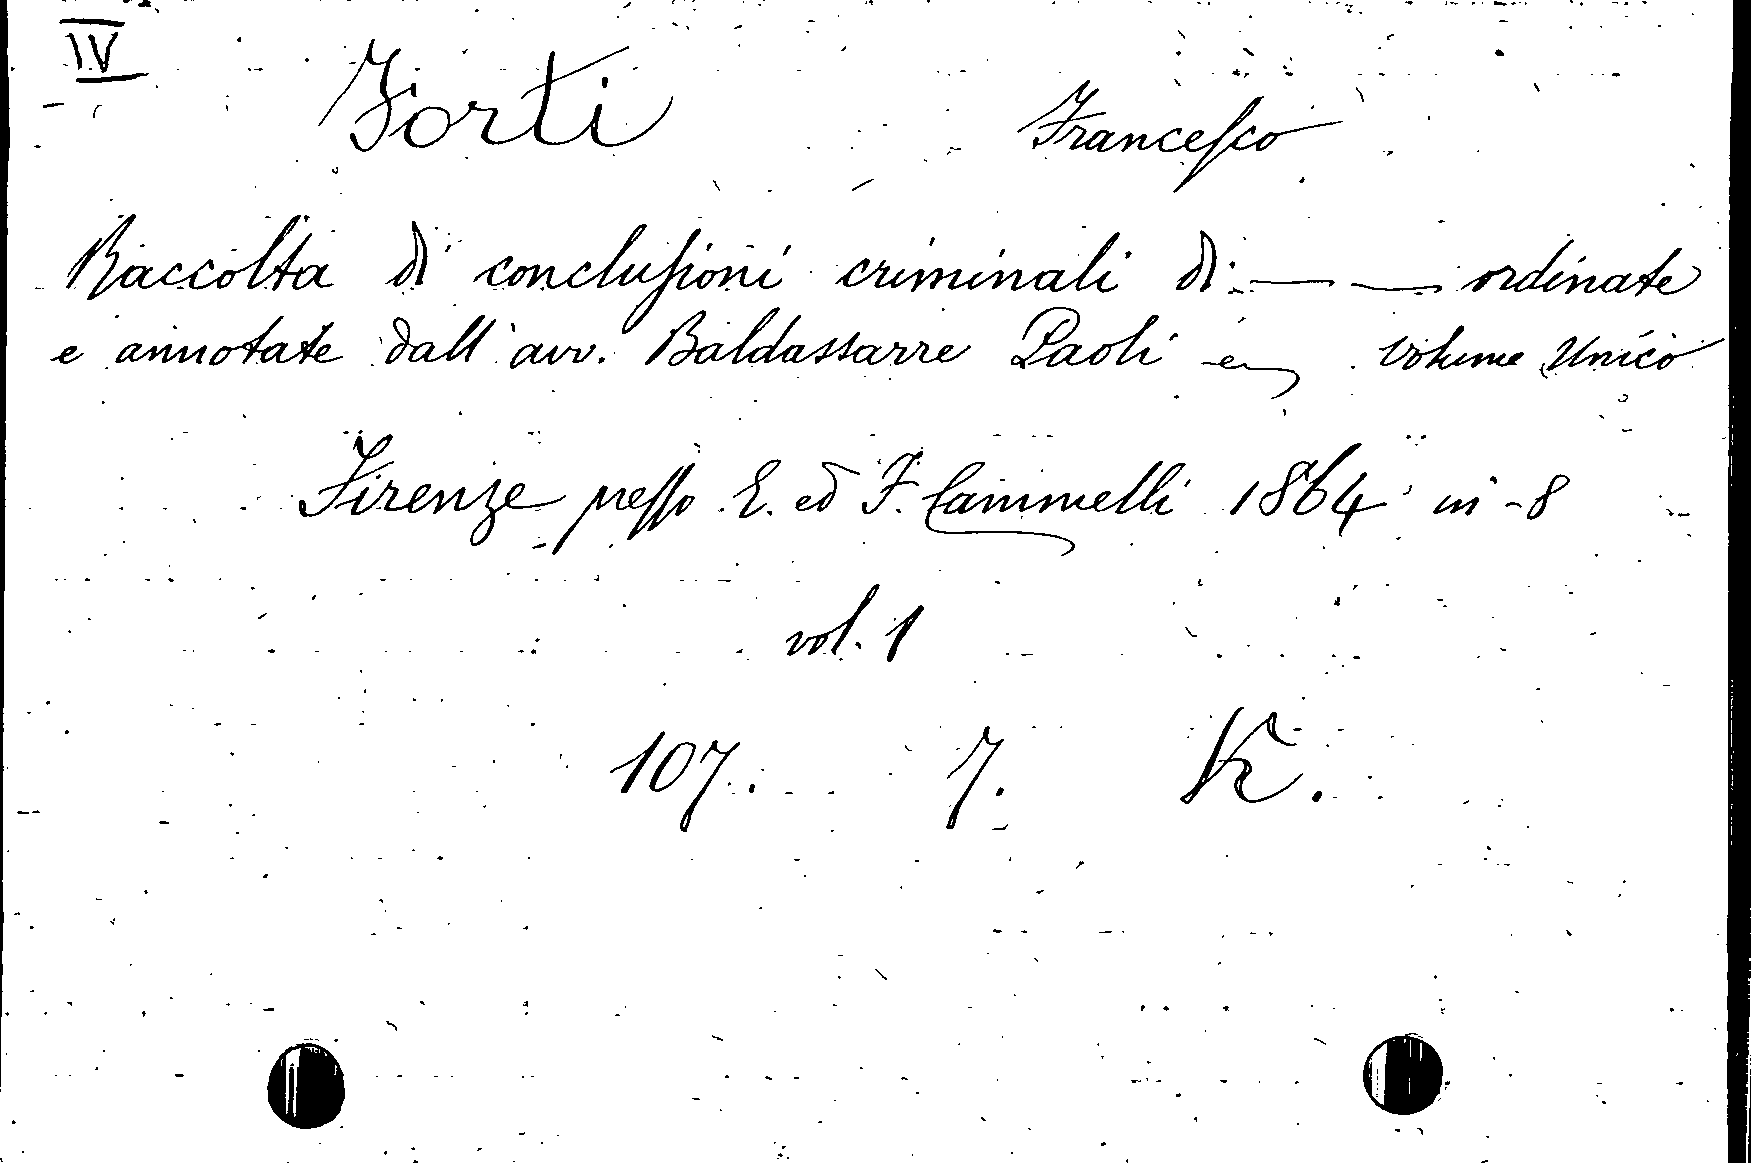 IV
Forti Francesco
Raccolta di conclusioni criminali di — — ordinate
e annotate dall'avv. Baldassarre Paoli Volume Unico
Firenze presso E. ed F. Cammelli 1864 in-8
vol. 1
107. 7. K.